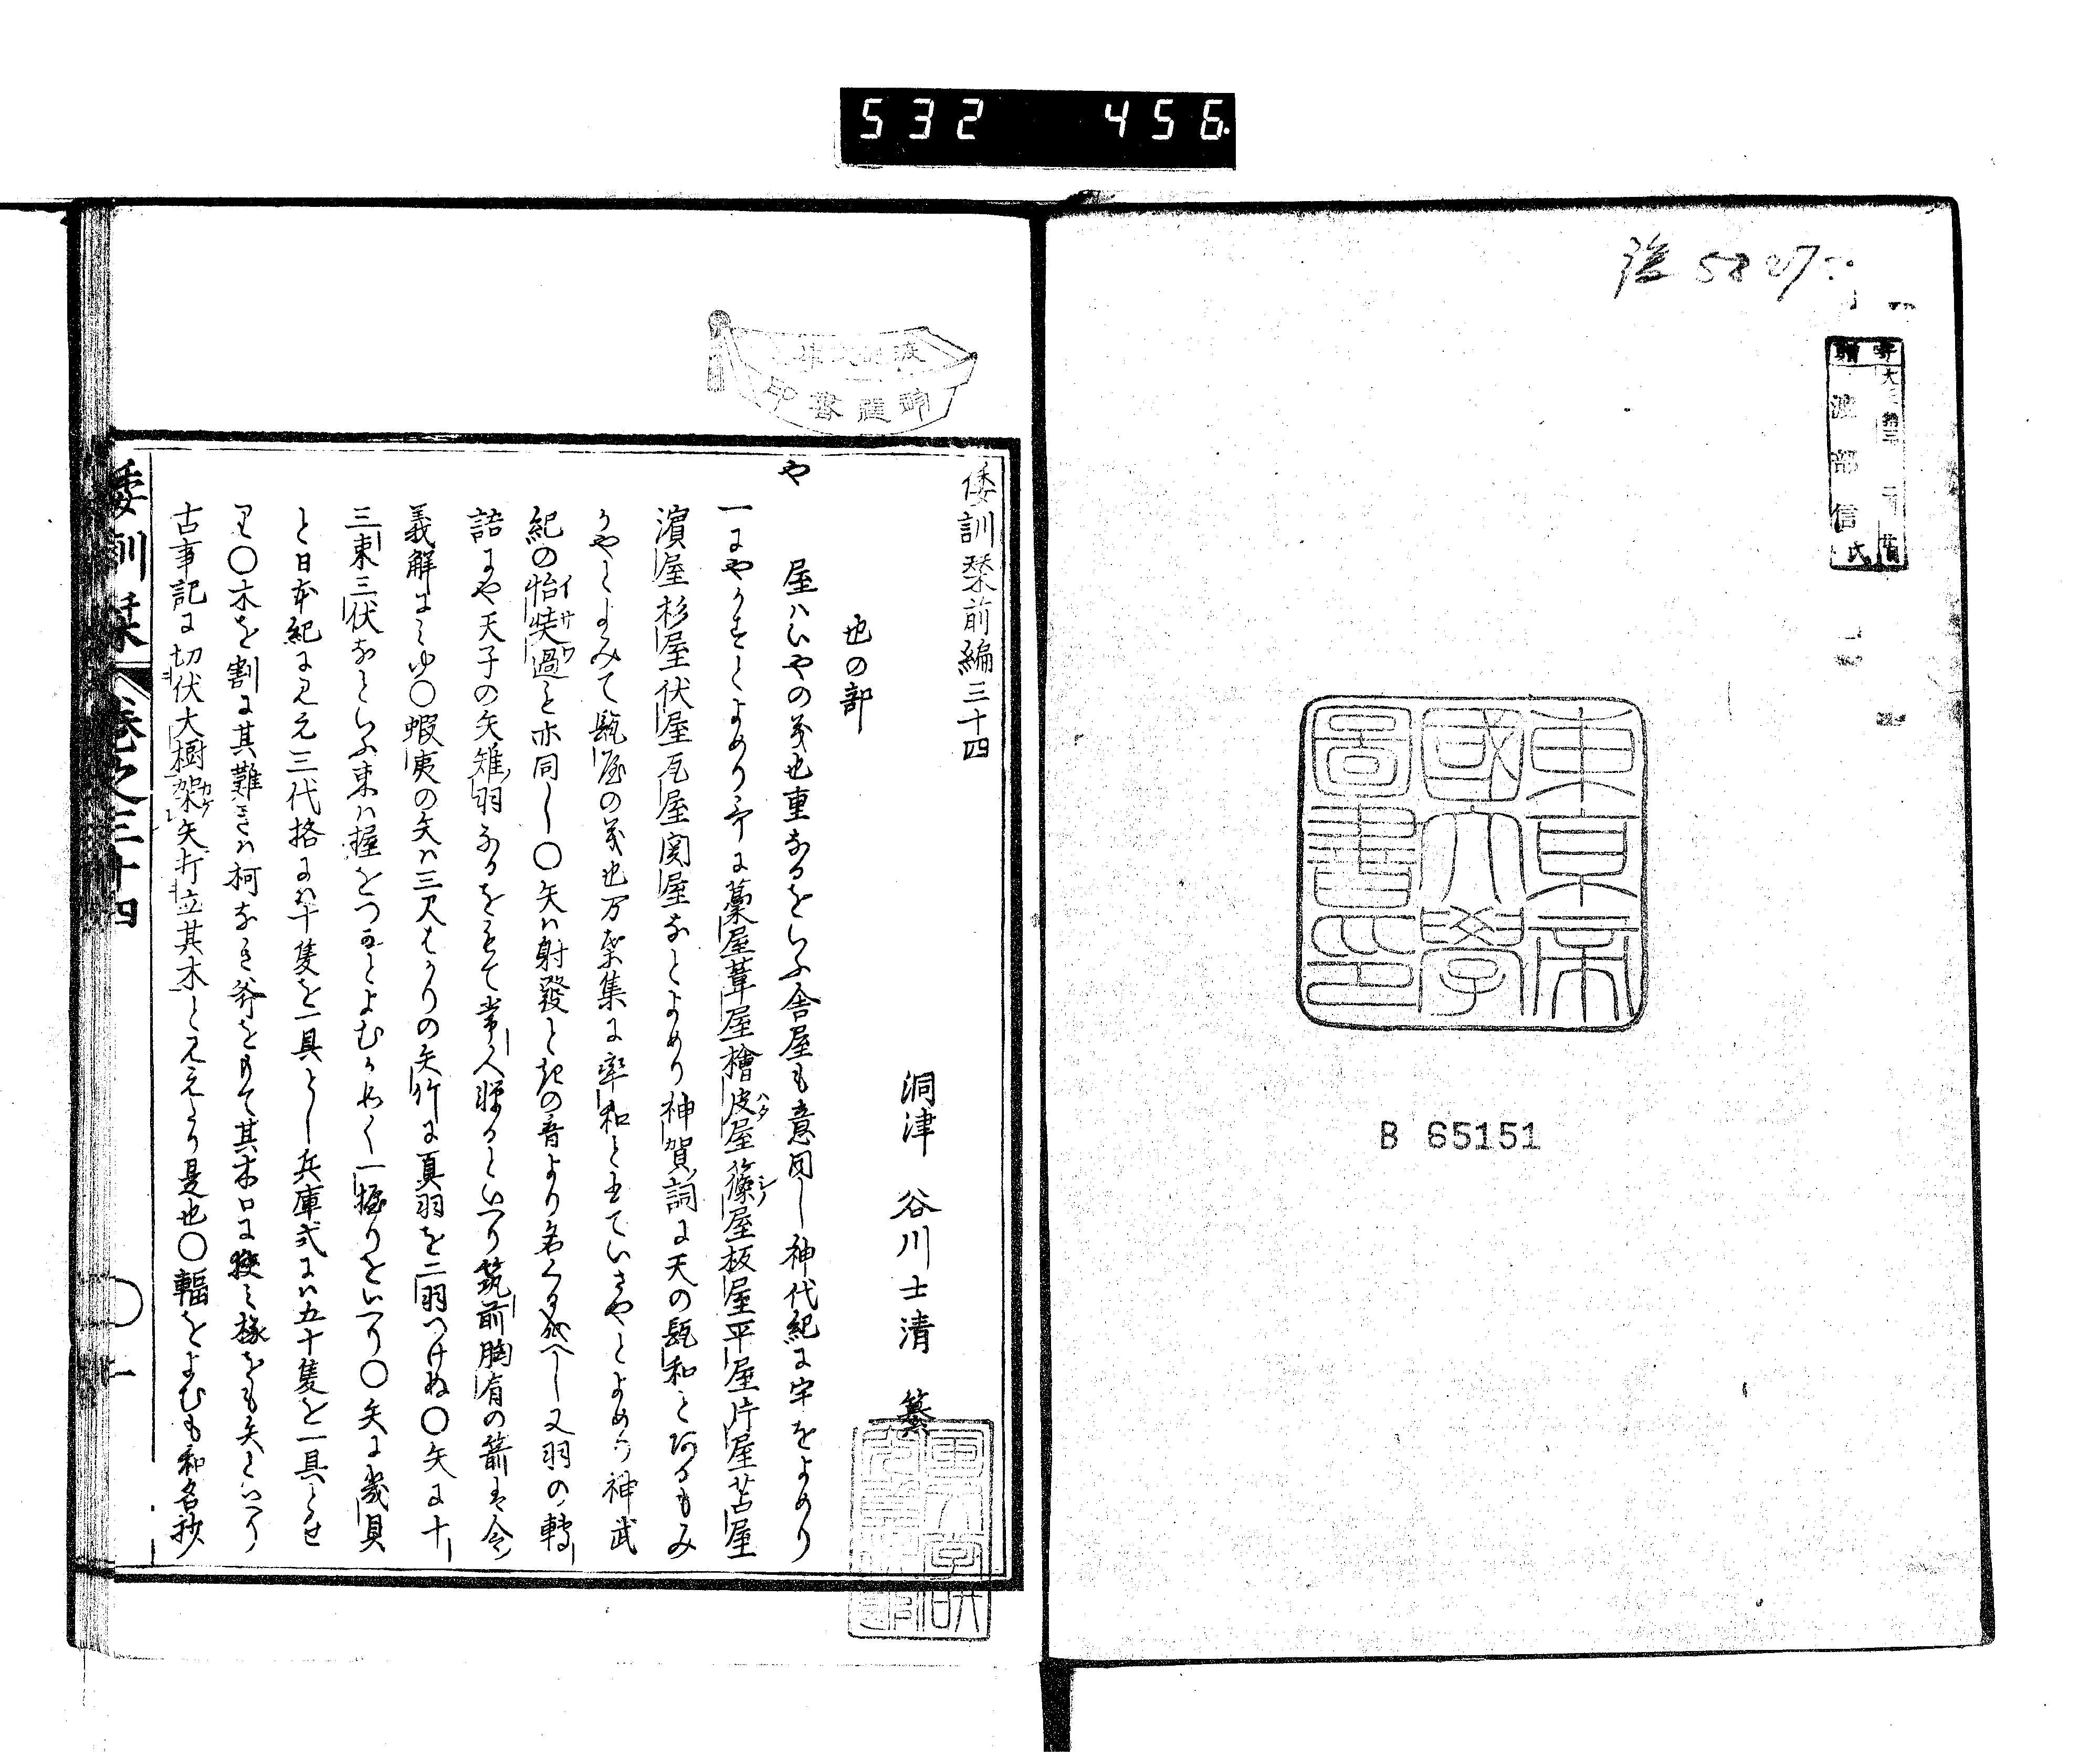 532 456
5827
寄贈
渡部信氏
東京帝
國大學
圖書印
B 65151
倭訓栞前編三十四
洞津 谷川士清 纂
也の部
や
屋ハいやの義也重なるをいふ舎屋も意同し神代紀に宇をよめり
一にやかすとよめり哥に藁屋葦屋檜皮屋篠屋板屋平屋片屋苫屋
濱屋杉屋伏屋瓦屋関屋なとよめり神賀詞に天の𤭖和とあるもみ
かやとよみて𤭖屋の義也万葉集に率和と書ていさやとよめり神武
紀の怡奘過と亦同し〇矢ハ射發と起の音より名くる成へし又羽の轉
語にや天子の矢雉羽なるをもて常人憚るといへり筑前胸肩の箭は令
義解にみゆ〇蝦夷の矢ハ三尺はかりの矢竹に真羽を二羽つけぬ〇矢に十
三束三伏なといふ束ハ握をつかとよむかめく一握りをいへり〇矢に幾具
と日本紀に見え三代格にハ十隻を一具とし兵庫式にハ五十隻を一具とせ
り〇木を割に其難きハ柯なき斧をもて其木口に挾み椓をも矢といへり
古事記に切伏大樹架矢打立其木と見えたり是也〇輻をよむも和名抄
倭訓栞 卷之三十四 〇一